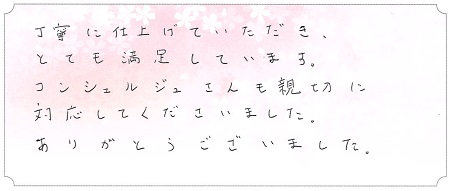 丁寧に仕上げていただき、
とても満足しています。
コンシェルジュさんも親切に
対応してくださいました。
ありがとうございました。